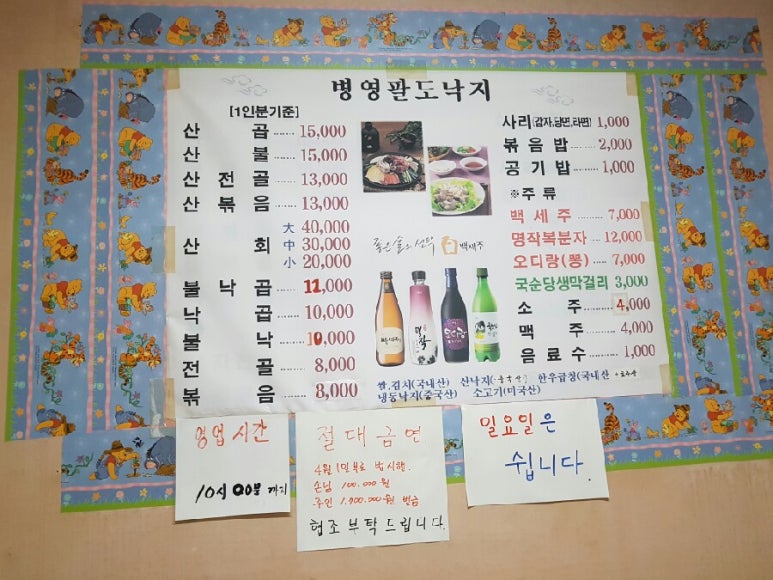 병영팔도낙지
[1인분기준]
산 곱 ...... 15,000
산 불 ...... 15,000
산 전 골 ...... 13,000
산 볶 음 ...... 13,000
산 회
大 40,000
中 30,000
小 20,000
불 낙 곱 ...... 11,000
낙 곱 ...... 10,000
불 낙 ...... 10,000
전 골 ...... 8,000
볶 음 ...... 8,000
좋은 술의 선택 백세주
사리(감자,당면,라면) 1,000
볶 음 밥 ...... 2,000
공 기 밥 ...... 1,000
※주 류
백 세 주 ...... 7,000
명작복분자 ... 12,000
오디랑(뽕) ... 7,000
국순당생막걸리 3,000
소 주 ...... 4,000
맥 주 ...... 4,000
음 료 수 ...... 1,000
쌀,김치(국내산) 산낙지( 한우곱창(국내산
냉동낙지(중국산) 소고기(미국산)
영업시간
10시 00분 까지
절대금연
4월 1일부로 법시행.
손님 100.000원
주인 1.700.000원 벌금
협조부탁드립니다.
일요일은
쉽니다.